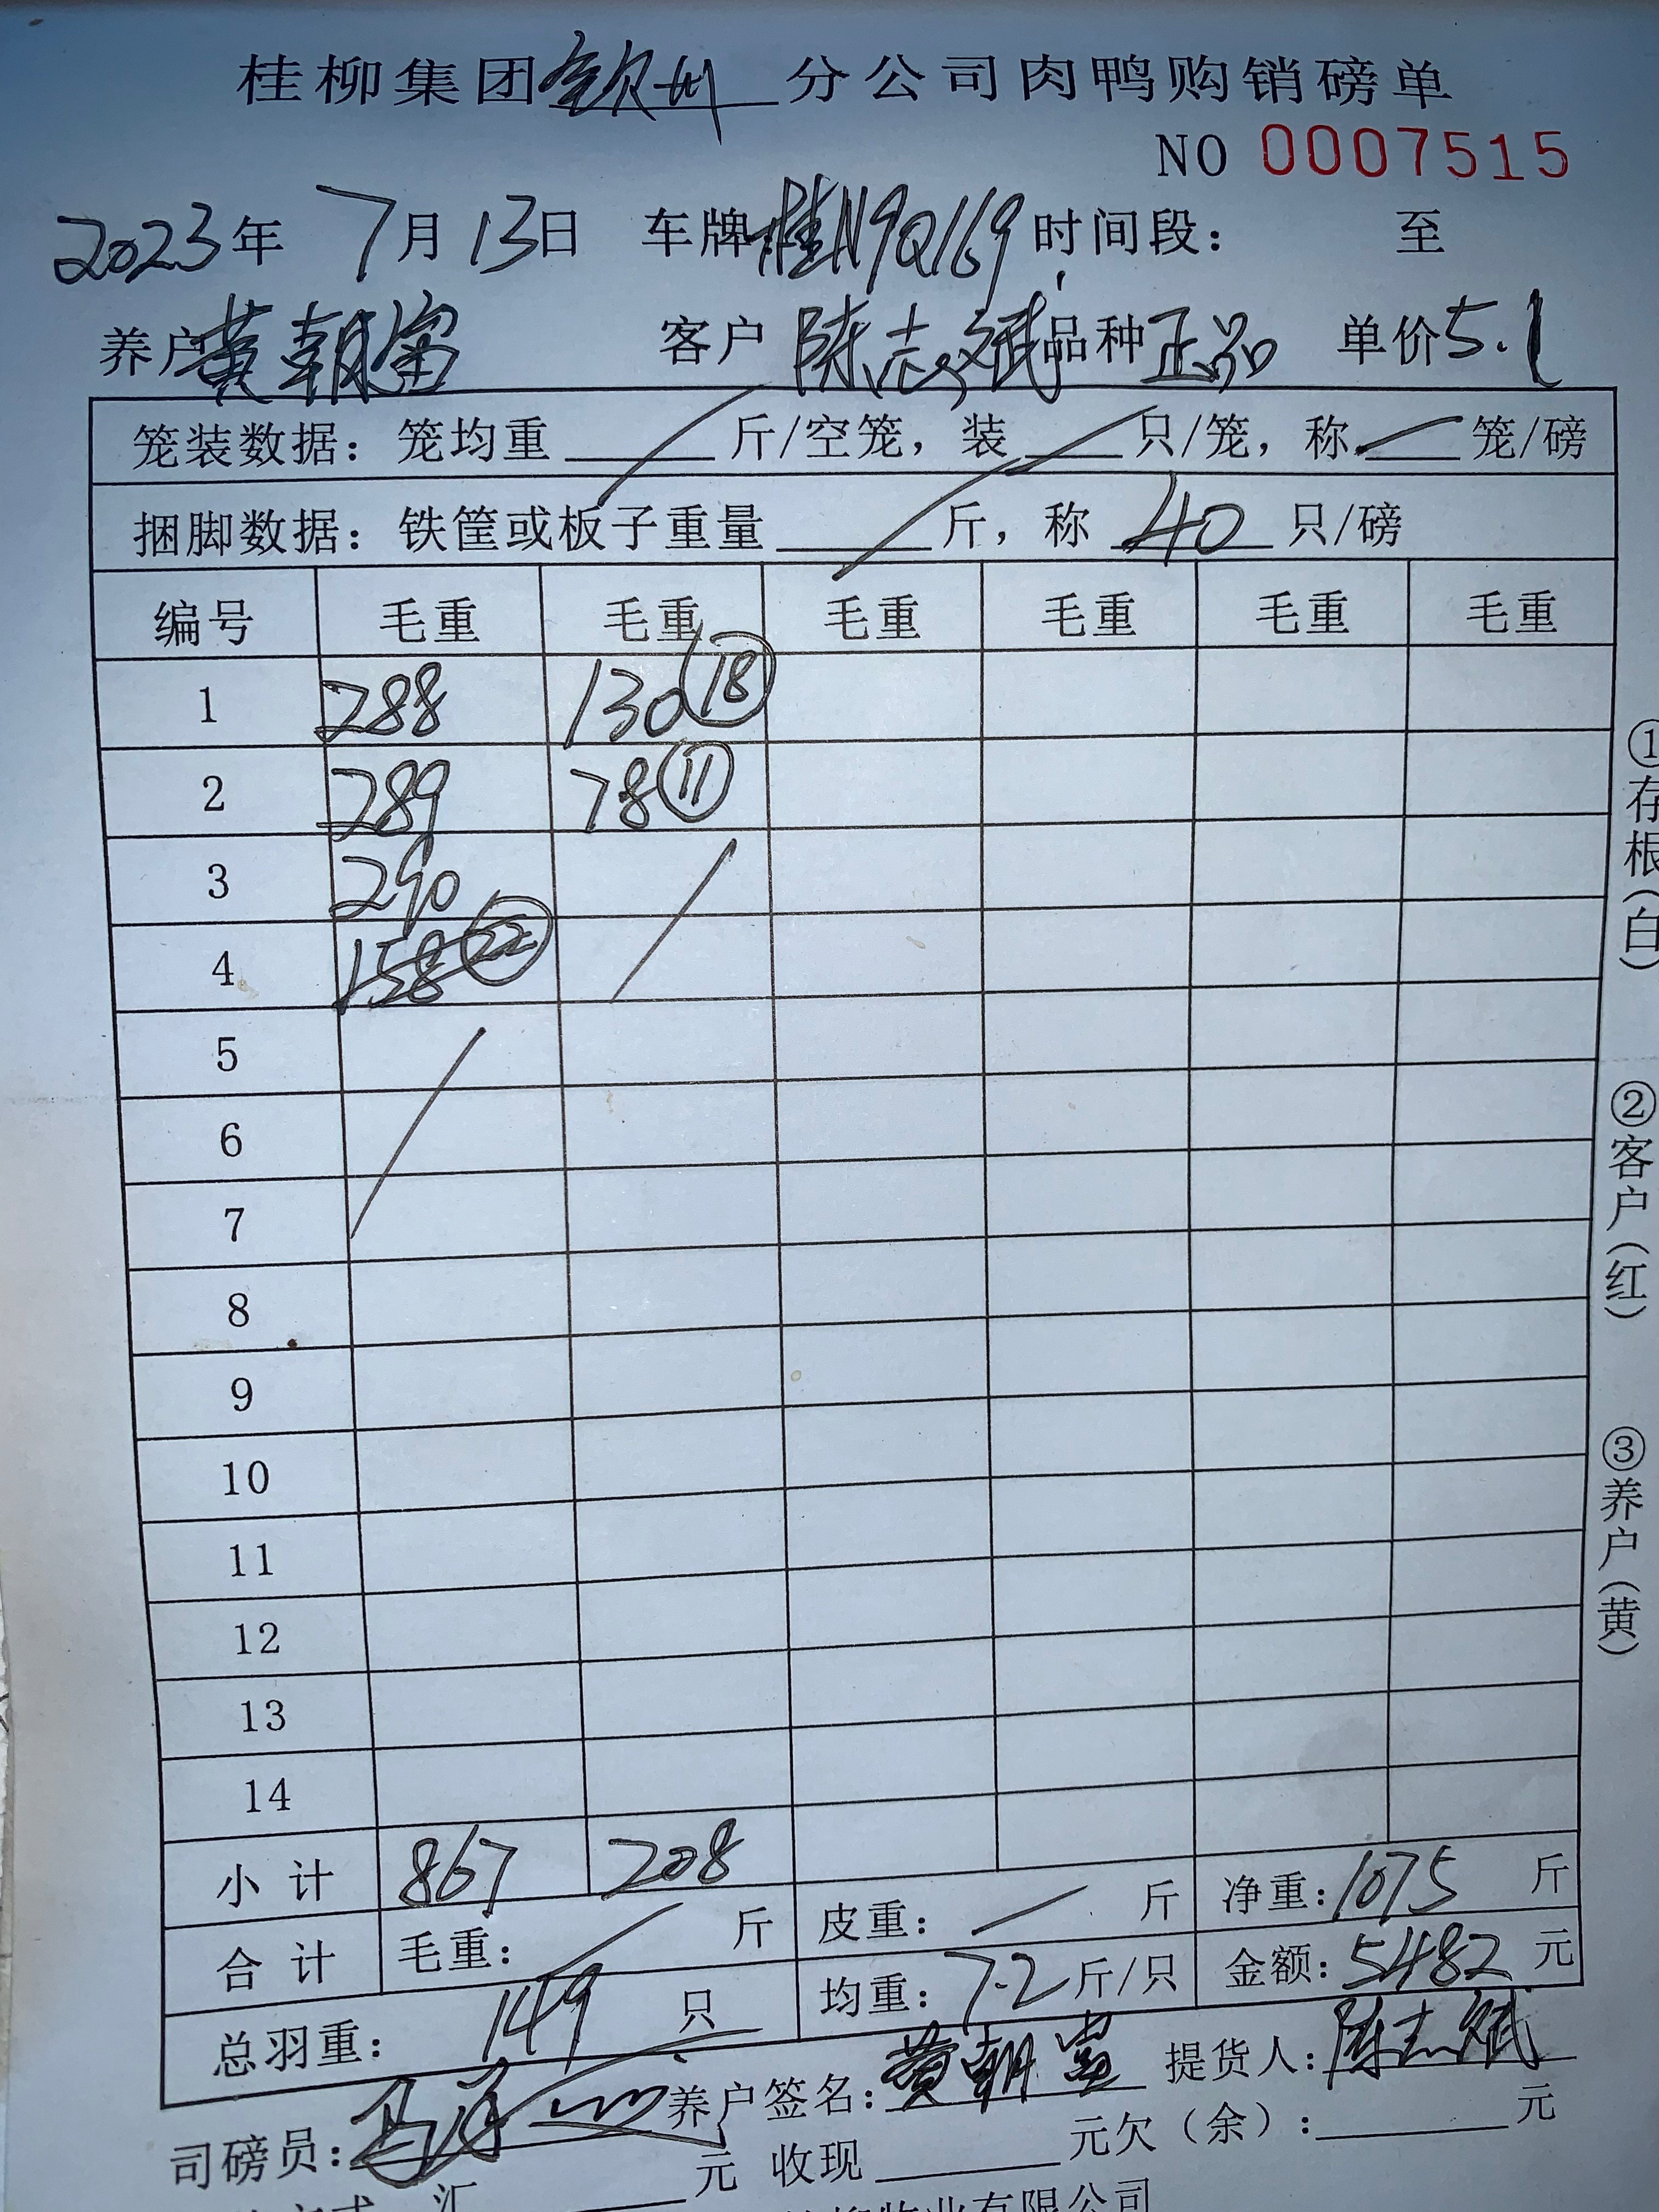 桂柳集团钦州分公司肉鸭购销磅单
NO 0007515
2023年 7月13日 车牌桂N9Q169时间段： 至
养户黄朝富 客户 陈志斌品种正品 单价5.1
笼装数据：笼均重 斤/空笼，装 只/笼，称 笼/磅
捆脚数据：铁筐或板子重量 斤，称 40 只/磅
编号 毛重 毛重 毛重 毛重 毛重 毛重
1 288 130 ⑱
2 289 78 ⑪
3 290
4 158 ㉒
5
6
7
8
9
10
11
12
13
14
小计 867 208
合计 毛重： 斤 皮重： 斤 净重：1075 斤
总羽重： 149 只 均重：7.2斤/只 金额：5482 元
司磅员： 养户签名：黄朝富 提货人：陈志斌
汇 元 收现 元欠（余）： 元
物业有限公司
①存根（白） ②客户（红） ③养户（黄）